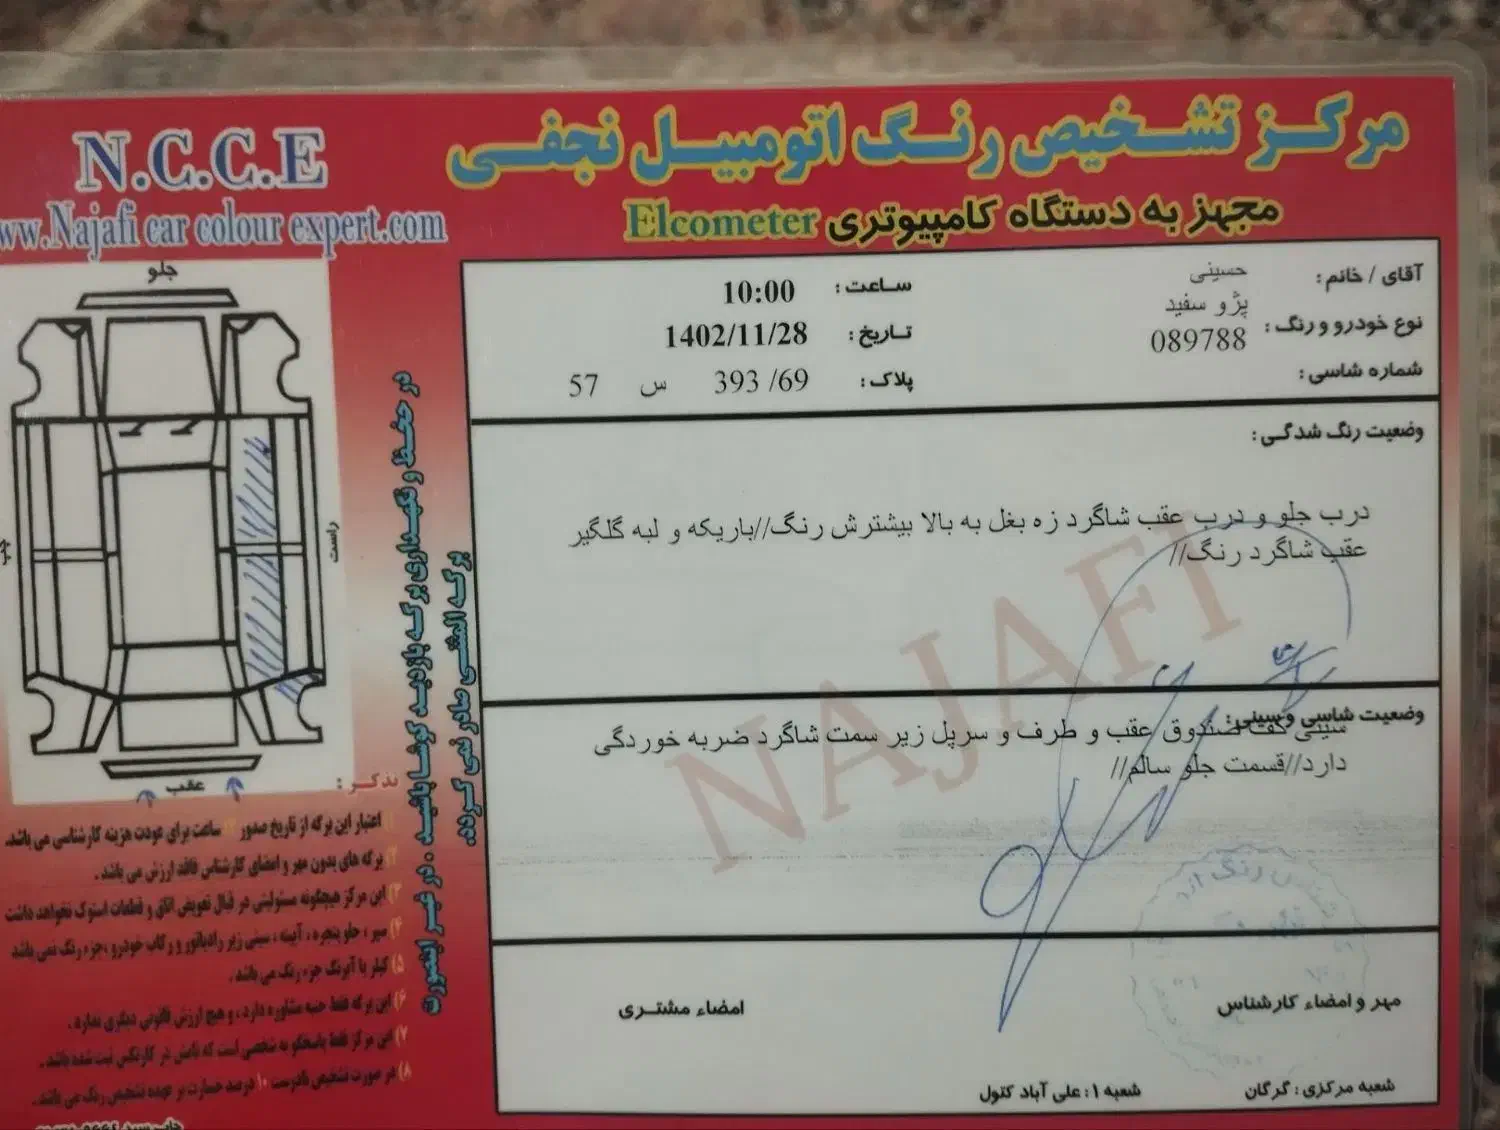 مرکز تشخیص رنگ اتومبیل نجفی
مجهز به دستگاه کامپیوتری Elcometer
N.C.C.E
www.Najafi car colour expert.com
آقای / خانم : حسینی
نوع خودرو و رنگ : پژو سفید
089788
شماره شاسی :
ساعت : 10:00
تاریخ : 1402/11/28
پلاک : 69/ 393 س 57
وضعیت رنگ شدگی :
درب جلو و درب عقب شاگرد زه بغل به بالا بیشترش رنگ//باریکه و لبه گلگیر
عقب شاگرد رنگ//
وضعیت شاسی و سینی :
سینی کف صندوق عقب و طرف و سرپل زیر سمت شاگرد ضربه خوردگی
دارد//قسمت جلو سالم//
NAJAFI
مهر و امضاء کارشناس
امضاء مشتری
شعبه مرکزی : گرگان
شعبه ۱ : علی آباد کتول
جلو
راست
چپ
عقب
در حفظ و نگهداری برگه بازدید کوشا باشید . در غیر اینصورت
برگه المثنی صادر نمی گردد.
تذکر :
۱) اعتبار این برگه از تاریخ صدور ساعت برای عودت هزینه کارشناسی می باشد.
۲) برگه های بدون مهر و امضای کارشناس فاقد ارزش می باشد .
۳) این مرکز هیچگونه مسئولیتی در قبال تعویض اتاق و قطعات استوک نخواهد داشت
۴) سپر ، جلو پنجره ، آیینه ، سینی زیر رادیاتور و رکاب خودرو ،جزء رنگ نمی باشد
۵) کیلر یا آبرنگ جزء رنگ می باشد .
۶) این برگه فقط جنبه مشاوره دارد ، و هیچ ارزش قانونی دیگری ندارد .
۷) این مرکز فقط پاسخگو به شخصی است که نامش در کارتکس ثبت شده باشد .
۸) در صورت تشخیص نادرست ۱۰ درصد خسارت بر عهده تشخیص رنگ می باشد .